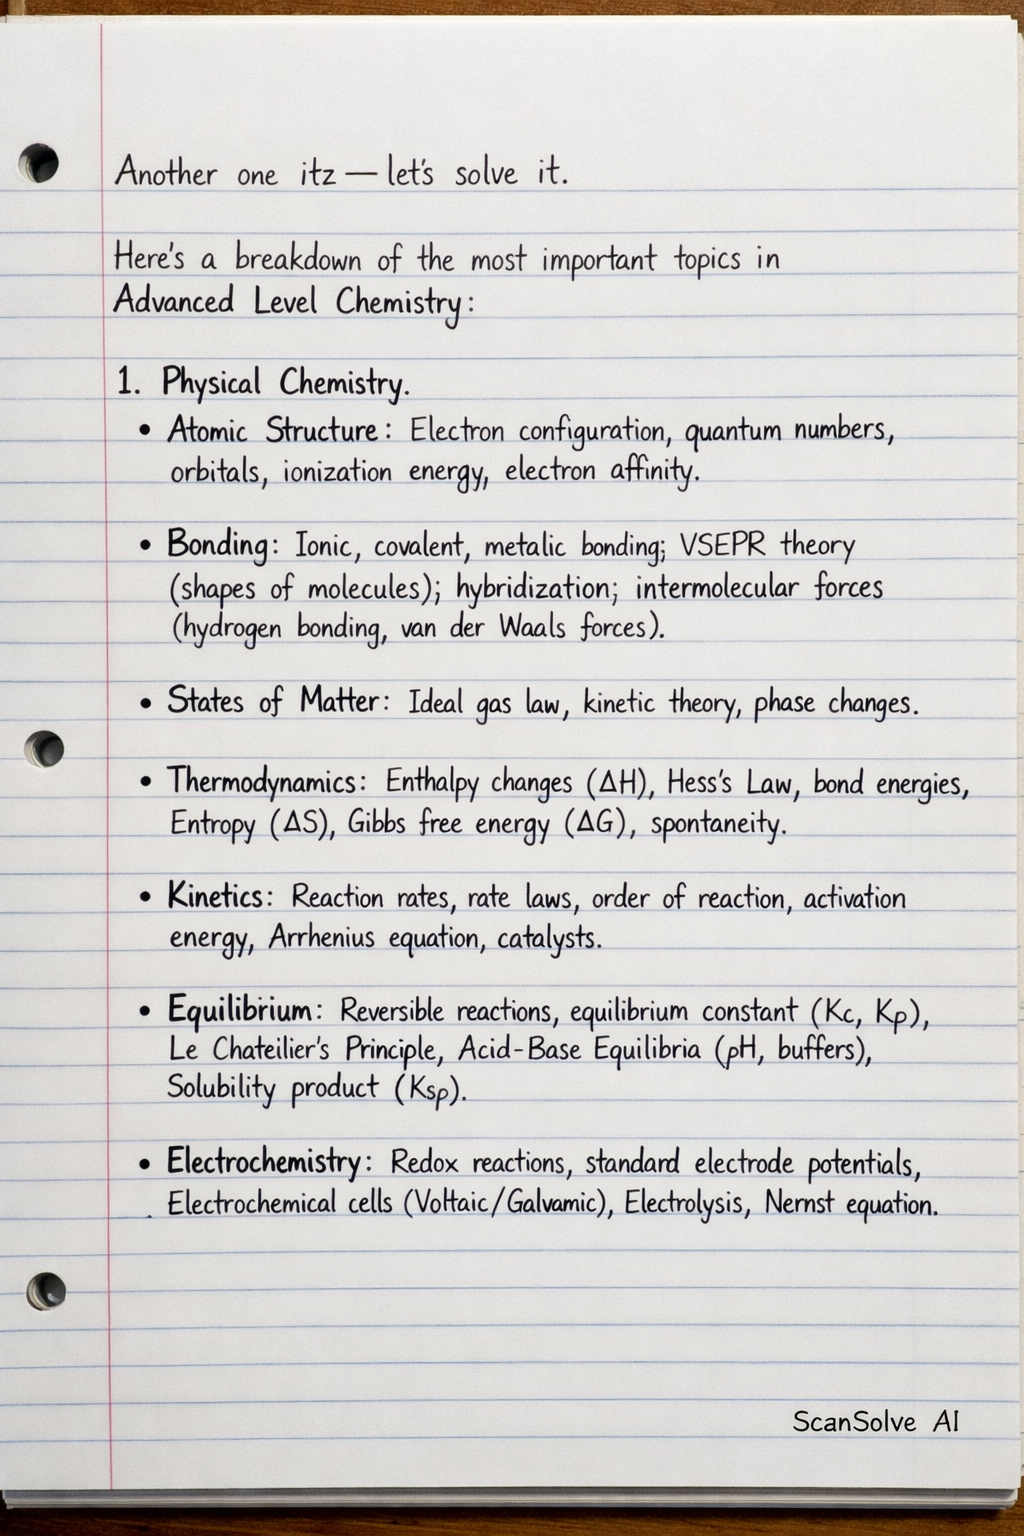 Another one itz — let's solve it.
Here's a breakdown of the most important topics in
Advanced Level Chemistry:
1. Physical Chemistry.
• Atomic Structure: Electron configuration, quantum numbers,
orbitals, ionization energy, electron affinity.
• Bonding: Ionic, covalent, metalic bonding; VSEPR theory
(shapes of molecules); hybridization; intermolecular forces
(hydrogen bonding, van der Waals forces).
• States of Matter: Ideal gas law, kinetic theory, phase changes.
• Thermodynamics: Enthalpy changes (ΔH), Hess's Law, bond energies,
Entropy (ΔS), Gibbs free energy (ΔG), spontaneity.
• Kinetics: Reaction rates, rate laws, order of reaction, activation
energy, Arrhenius equation, catalysts.
• Equilibrium: Reversible reactions, equilibrium constant (Kc, Kp),
Le Chateilier's Principle, Acid-Base Equilibria (pH, buffers),
Solubility product (Ksp).
• Electrochemistry: Redox reactions, standard electrode potentials,
Electrochemical cells (Voltaic/Galvamic), Electrolysis, Nernst equation.
ScanSolve AI